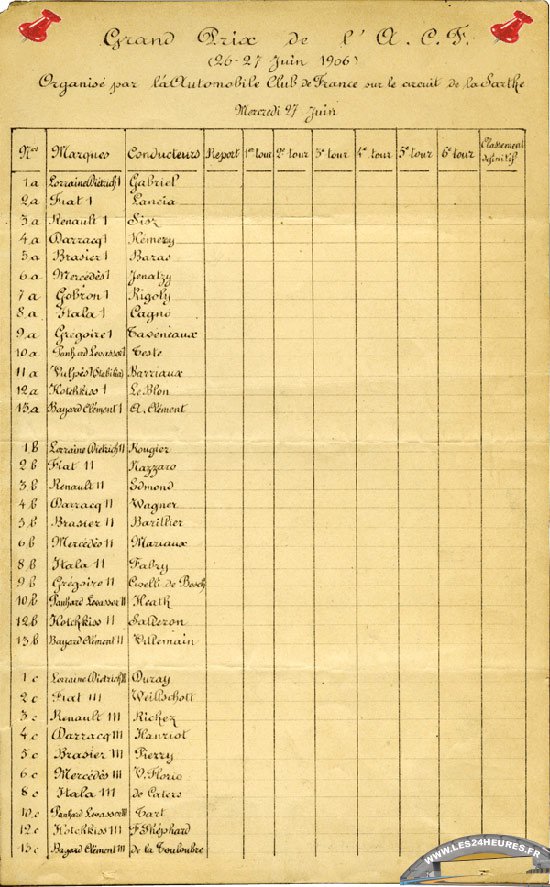 Grand Prix de l'A.C.F.
(26-27 Juin 1906)
Organisé par l'Automobile Club de France sur le circuit de la Sarthe
Mercredi 27 Juin
Nos Marques Conducteurs Report 1er tour 2e tour 3e tour 4e tour 5e tour 6e tour Classement définitif
1a Lorraine Dietrich 1 Gabriel
2a Fiat 1 Lancia
3a Renault 1 Sisz
4a Darracq 1 Hémery
5a Brasier 1 Baras
6a Mercédès 1 Jenatzy
7a Gobron 1 Rigoly
8a Itala 1 Cagno
9a Grégoire 1 Taveneaux
10a Panhard Levassor 1 Teste
11a Vulpès 1 Barriaux
12a Hotchkiss 1 Le Blon
13a Bayard Clément 1 A. Clément
1b Lorraine Dietrich 11 Rougier
2b Fiat 11 Nazzaro
3b Renault 11 Edmond
4b Darracq 11 Wagner
5b Brasier 11 Barillier
6b Mercédès 11 Mariaux
8b Itala 11 Fabry
9b Grégoire 11 Civelli de Bosch
10b Panhard Levassor 11 Heath
12b Hotchkiss 11 Salleron
13b Bayard Clément 11 Villemain
1c Lorraine Dietrich 111 Duray
2c Fiat 111 Weilschott
3c Renault 111 Richez
4c Darracq 111 Hanriot
5c Brasier 111 Pierry
6c Mercédès 111 V. Florio
8c Itala 111 de Caters
10c Panhard Levassor 111 Tart
12c Hotchkiss 111 F Shéphard
13c Bayard Clément 111 de la Touloubre
WWW.LES24HEURES.FR